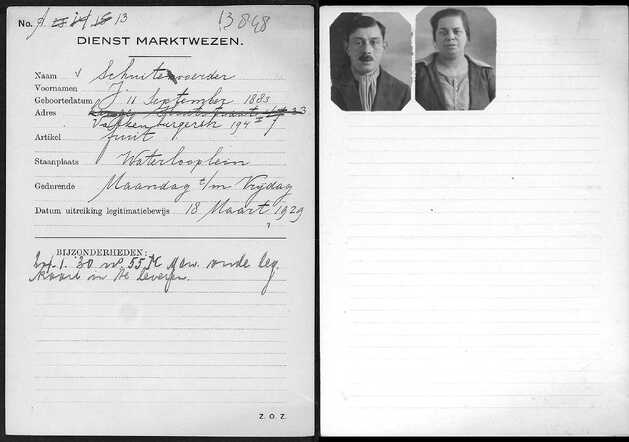 No. A. 13
13898
DIENST MARKTWEZEN.
Naam Schuitevoerder
Voornamen J.
Geboortedatum 11 September 1883
Adres
Valkenburgerstr 194
Artikel fruit
Staanplaats Waterlooplein
Gedurende Maandag t/m Vrijdag
Datum uitreiking legitimatiebewijs 18 Maart 1929
BIJZONDERHEDEN:
1. '30 no 55 M oude leg.
kaart in te leveren.
Z. O. Z.